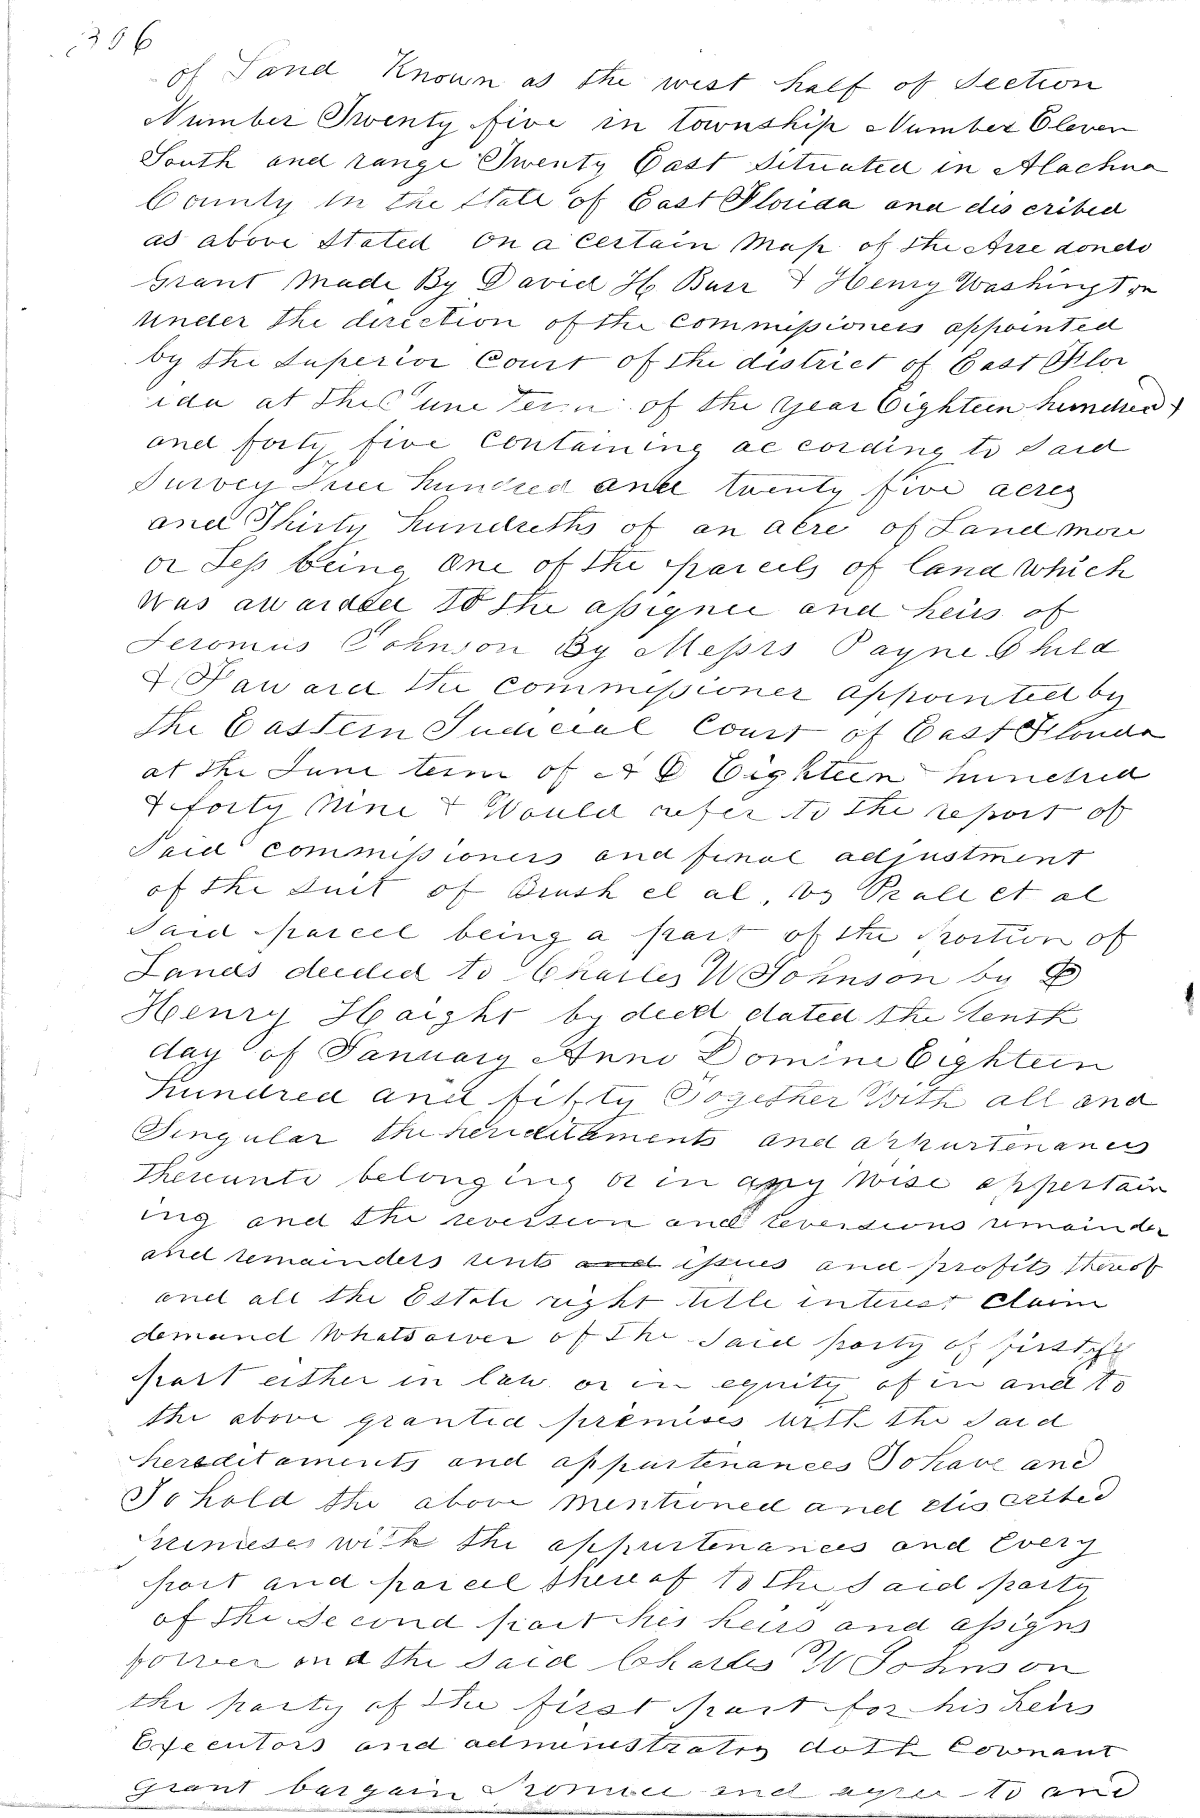 396
of Land Known as the west half of Section
Number Twenty five in township Number Eleven
South and range Twenty East Situated in Alachua
County in the State of East Florida and discribed
as above Stated on a certain Map of the Arredondo
Grant Made By David H Burr & Henry Washington
under the direction of the commissioners appointed
by the Superior Court of the district of East Flor
ida at the June term of the year Eighteen hundred
and forty five Containing ac cording to Said
Survey Three hundred and twenty five acres
and Thirty hundreths of an acre of Land more
or Less being One of the parcels of land which
was awarded to the assignee and heirs of
Jeromus Johnson By Messrs Payne Child
& Faward the commissioner appointed by
the Eastern Judicial Court of East Florida
at the June term of A D Eighteen hundred
& forty Nine & Would refer to the report of
Said commissioners and final adjustment
of the Suit of Brush el al, vs Prall et al
Said parcel being a part of the Portion of
Lands deeded to Charles W Johnson by D
Henry Haight by deed dated the tenth
day of January Anno Domine Eighteen
hundred and fifty Together With all and
Singular the hereditaments and appurtenances
thereunto belonging or in any wise appertain
ing and the reversion and reversions remainder
and remainders rents and issues and profits thereof
and all the Estate right title interest Claim
demand Whatsoever of the Said party of first
part either in law or in equity of in and to
the above granted premises with the Said
hereditaments and appurtenances To have and
To hold the above mentioned and discribed
premises with the appurtenances and Every
part and parcel thereof to the Said party
of the Second part his heirs and assigns
forver and the Said Charles W Johnson
the party of the first part for his heirs
Executors and administrators doth Covenant
grant bargain Promise and agree to and